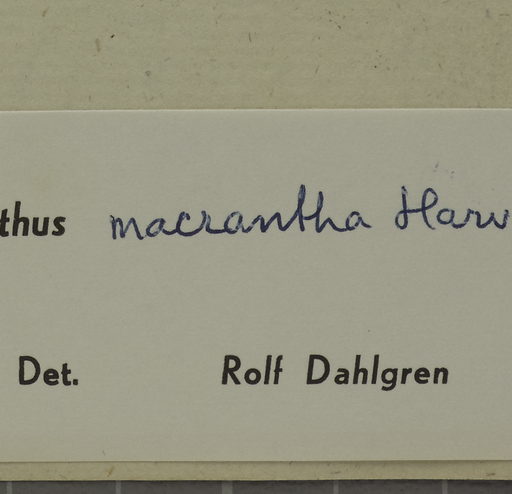 thus macrantha Harv
Det. Rolf Dahlgren